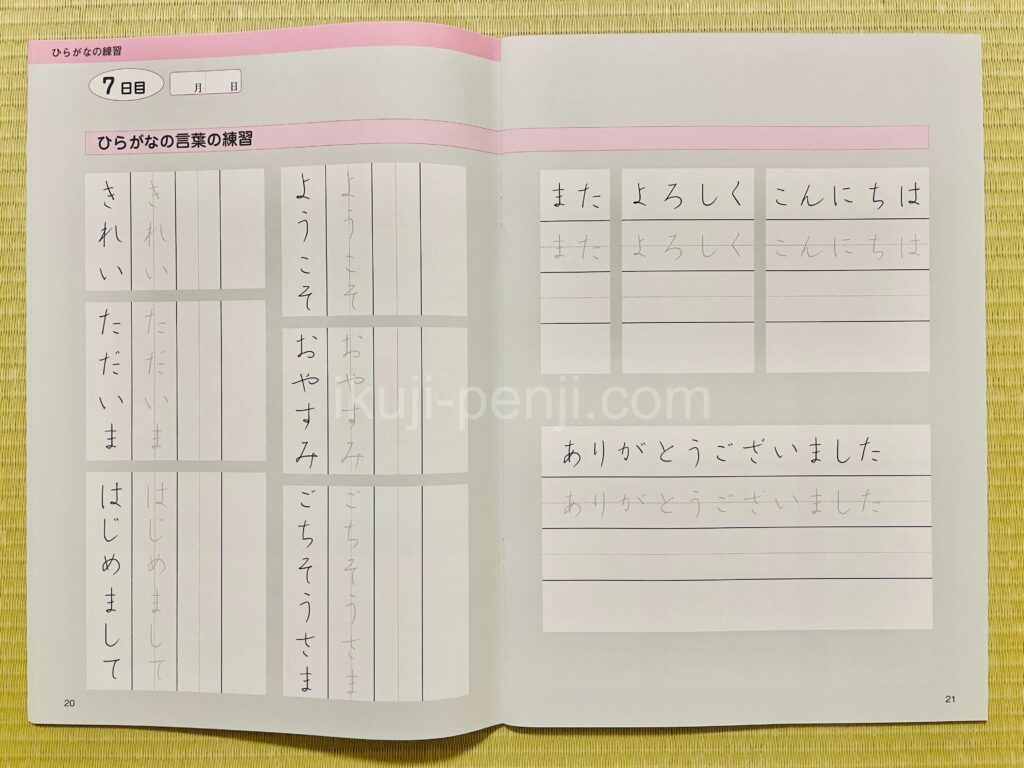 ひらがなの練習
7日目
月 日
ひらがなの言葉の練習
きれい
きれい
ただいま
ただいま
はじめまして
はじめまして
ようこそ
ようこそ
おやすみ
おやすみ
ごちそうさま
ごちそうさま
また
また
よろしく
よろしく
こんにちは
こんにちは
ありがとうございました
ありがとうございました
ikuji-penji.com
20
21